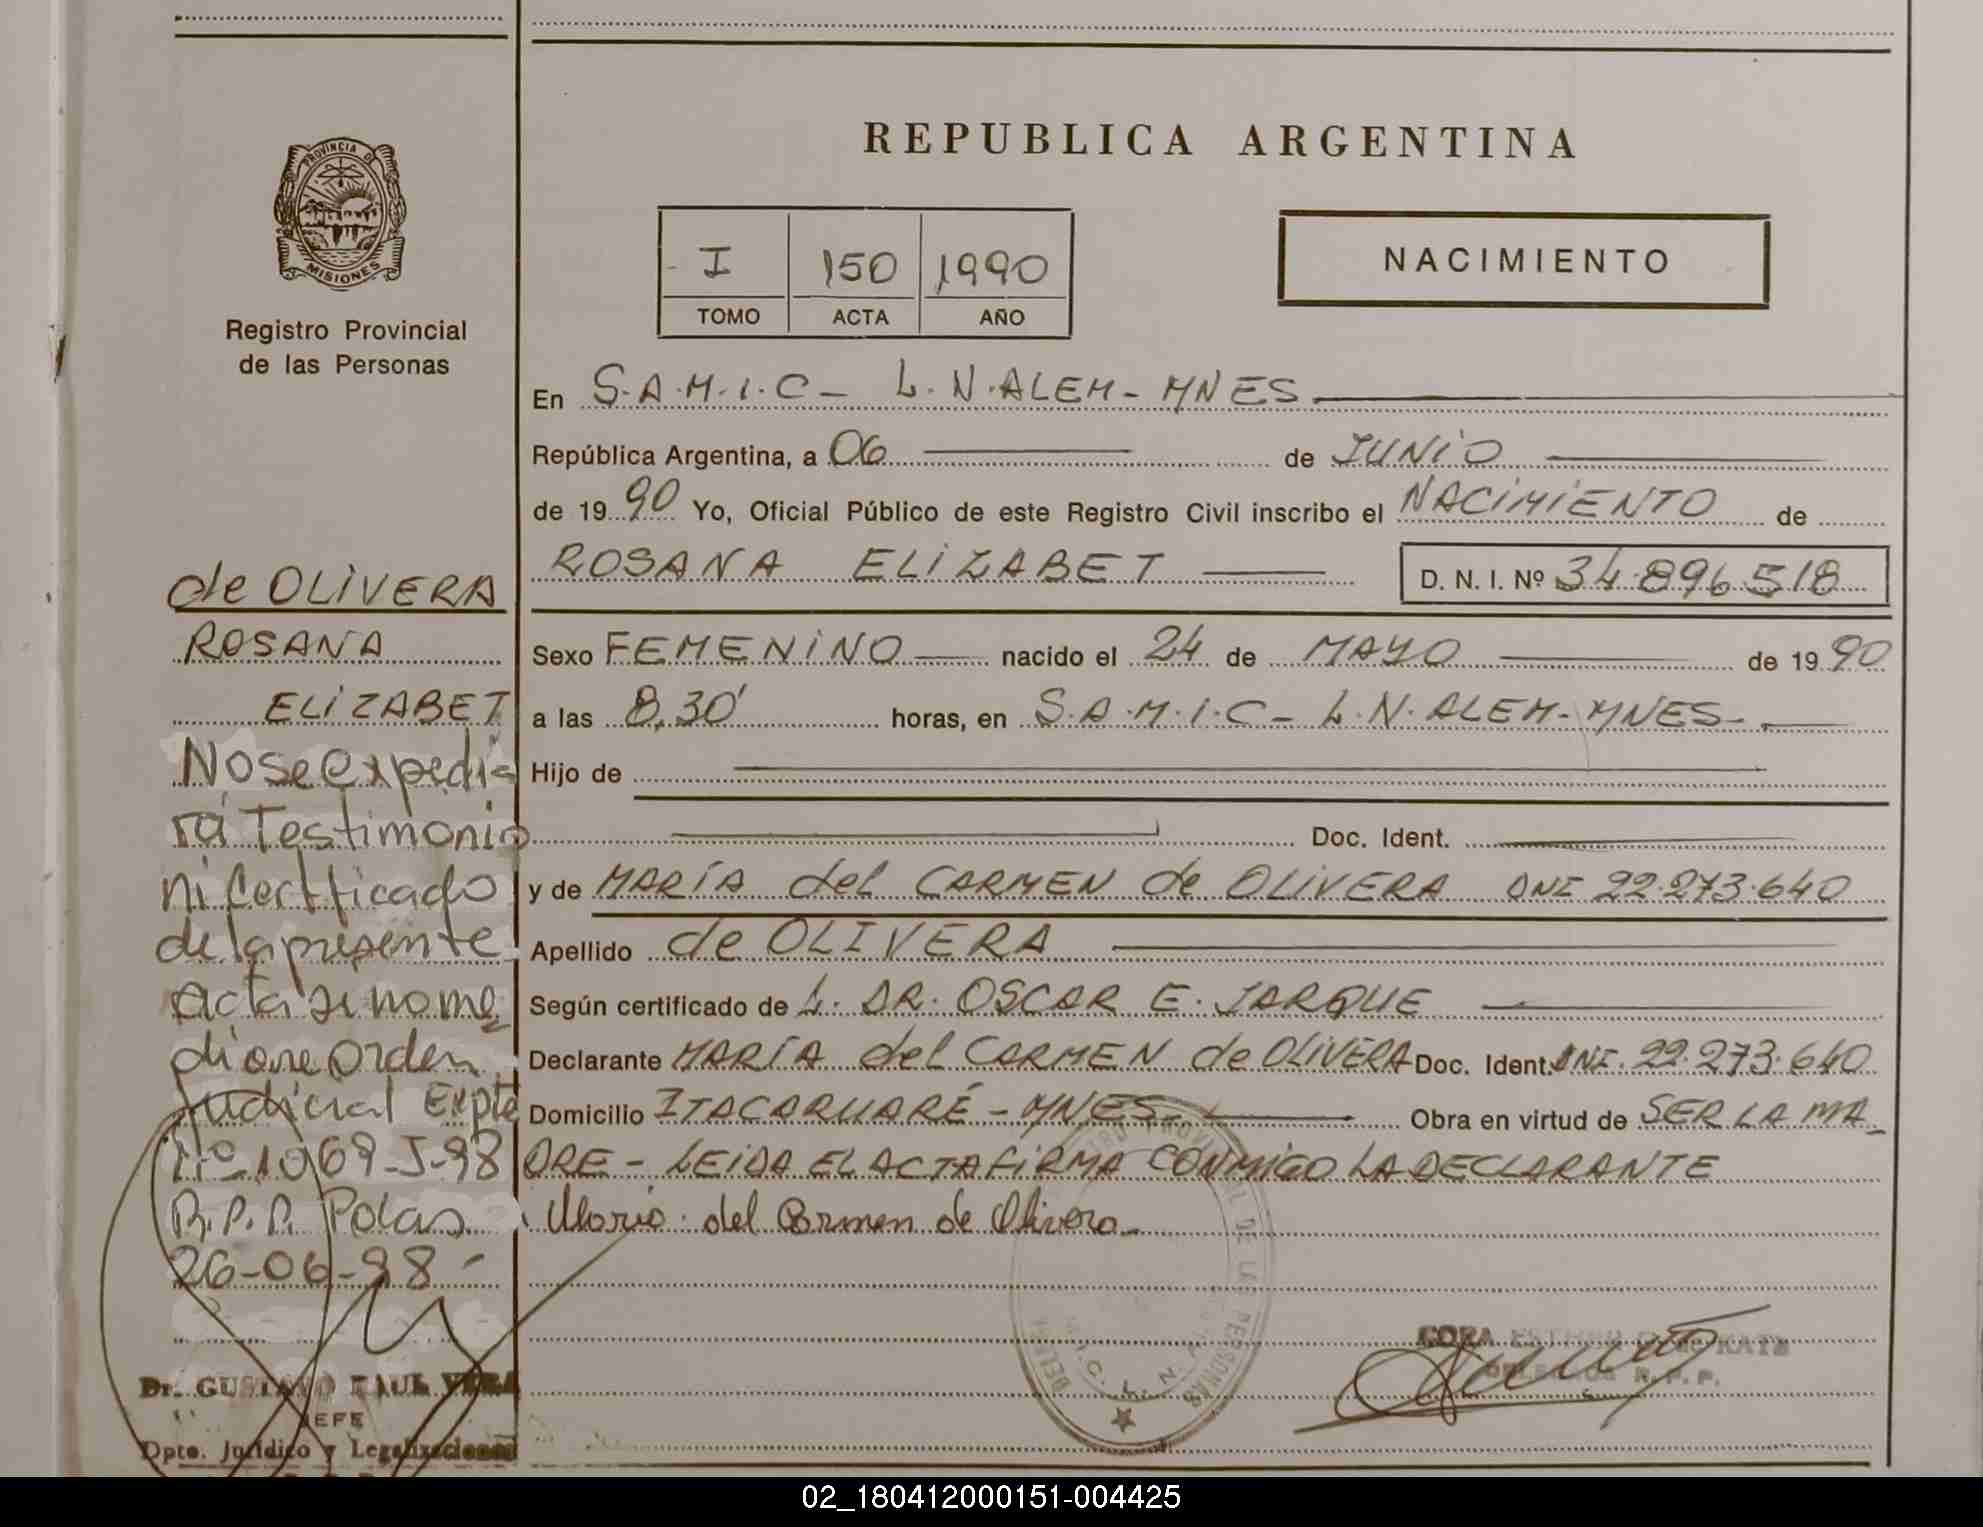 PROVINCIA DE
MISIONES
Registro Provincial
de las Personas
REPUBLICA ARGENTINA
I 150 1990
TOMO ACTA AÑO
NACIMIENTO
En S.A.M.I.C - L.N.ALEM - MNES
República Argentina, a 06 de JUNIO
de 1990 Yo, Oficial Público de este Registro Civil inscribo el NACIMIENTO de
ROSANA ELIZABET D. N. I. Nº 34.896.518
Sexo FEMENINO nacido el 24 de MAYO de 1990
a las 8,30' horas, en S.A.M.I.C - L.N.ALEM - MNES -
Hijo de
Doc. Ident.
y de MARÍA del CARMEN de OLIVERA DNI 22.273.640
Apellido de OLIVERA
Según certificado de L. DR. OSCAR E. JARQUE
Declarante MARÍA del CARMEN de OLIVERA Doc. Ident. DNI. 22.273.640
Domicilio ITACARUARÉ - MNES - Obra en virtud de SER LA MA_
DRE - LEIDA EL ACTA FIRMA CONMIGO LA DECLARANTE
Maria del Carmen de Olivera
de OLIVERA
ROSANA
ELIZABET
No se expedi
rá Testimonio
ni Certificado
de la presente
acta si no me
diare orden
judicial Expte
Nº 1069-J-98
R.P.P. Pdas.
26-06-98 -
Dr. GUSTAVO RAUL VERA
JEFE
Dpto. Jurídico y Legalizaciones
CORA ESTHER
DELEGADA R. P. P.
PROVINCIAL DE LAS PERSONAS
02_180412000151-004425